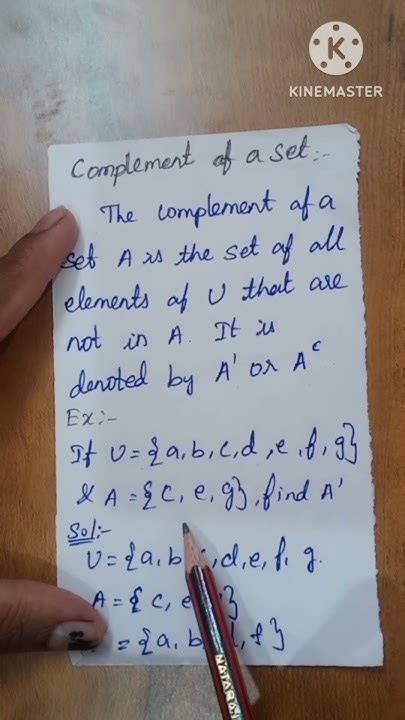 K
KINEMASTER
Complement of a set:-
The complement of a
set A is the set of all
elements of U that are
not in A. It is
denoted by A' or Aᶜ
Ex:-
If U = {a, b, c, d, e, f, g}
& A = {c, e, g}, find A'
Sol:-
U = {a, b, d, e, f, g.
A = { c, e }
= {a, b, f}
NATARAJ